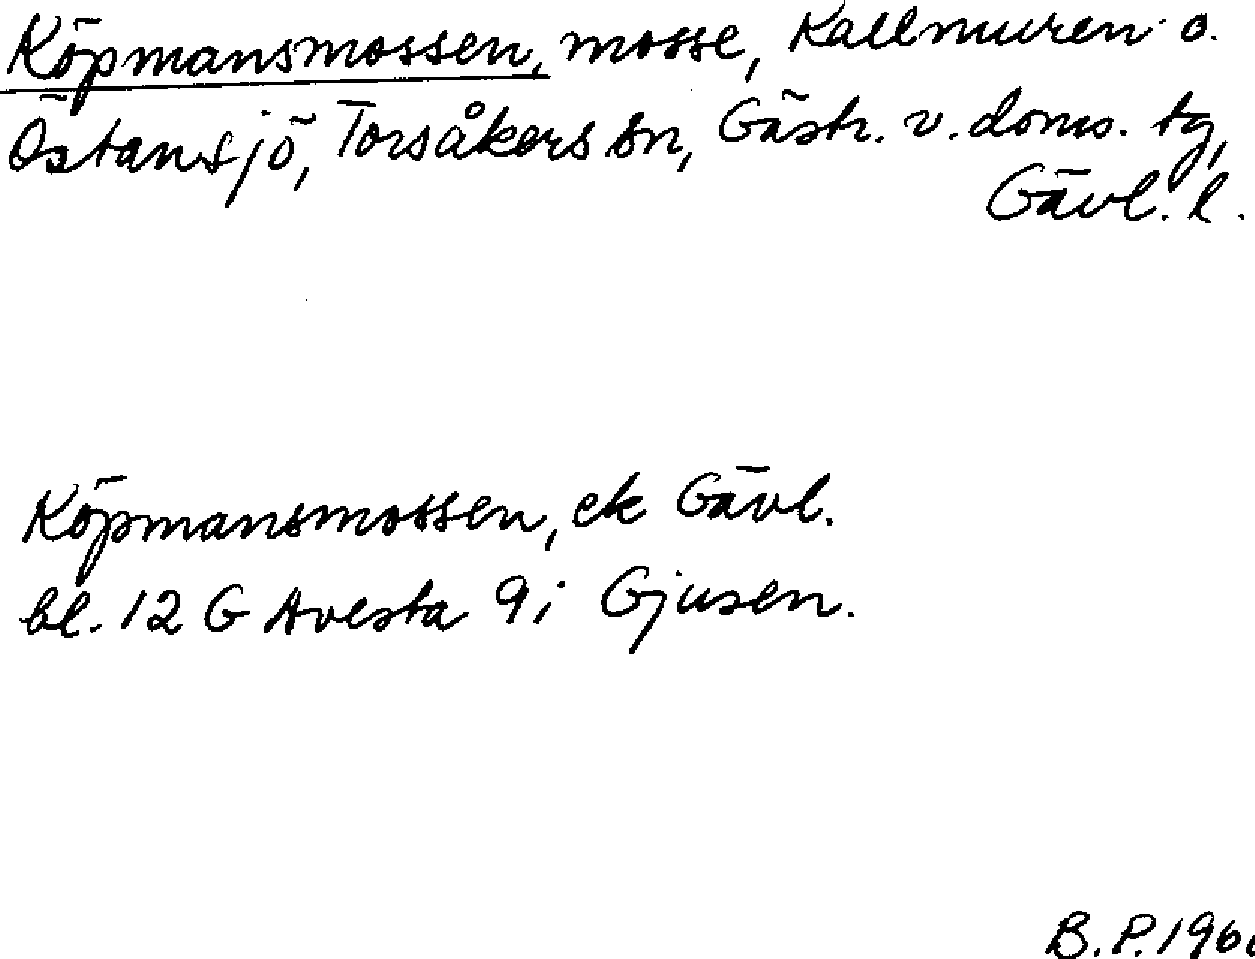 Köpmansmossen, mosse, Kallmuren o.
Östansjö, Torsåkers sn, Gästr. v. doms. tg,
Gävl. l.
Köpmansmossen, ek Gävl.
bl. 12 G Avesta 9i Gjusen.
B.P.